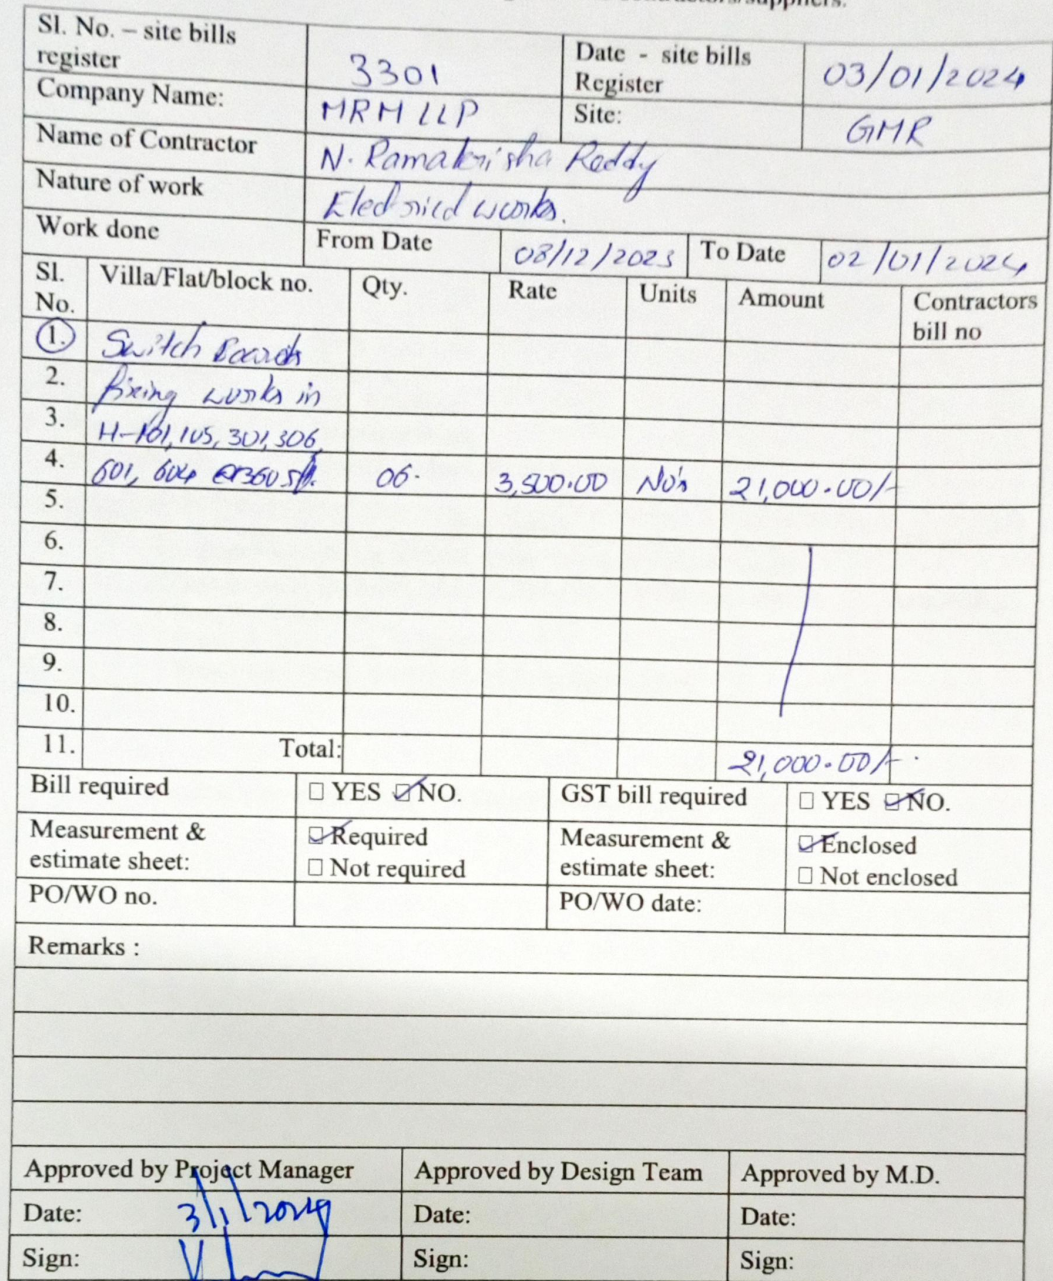 Sl. No. – site bills register 3301 Date - site bills Register 03/01/2024
Company Name: MRM LLP Site: GMR
Name of Contractor N. Ramakrisha Reddy
Nature of work Electrical works.
Work done From Date 08/12/2023 To Date 02/01/2024
Sl. No. Villa/Flat/block no. Qty. Rate Units Amount Contractors bill no
1. Switch Boards
2. fixing works in
3. H-101, 105, 301, 306,
4. 601, 604 1360 sft. 06. 3,500.00 No's 21,000.00/-
5.
6.
7.
8.
9.
10.
11. Total: 21,000.00/-
Bill required ☐ YES ☑ NO. GST bill required ☐ YES ☑ NO.
Measurement & estimate sheet: ☑ Required ☐ Not required Measurement & estimate sheet: ☑ Enclosed ☐ Not enclosed
PO/WO no. PO/WO date:
Remarks :
Approved by Project Manager Approved by Design Team Approved by M.D.
Date: 3/1/2024 Date: Date:
Sign: Sign: Sign: